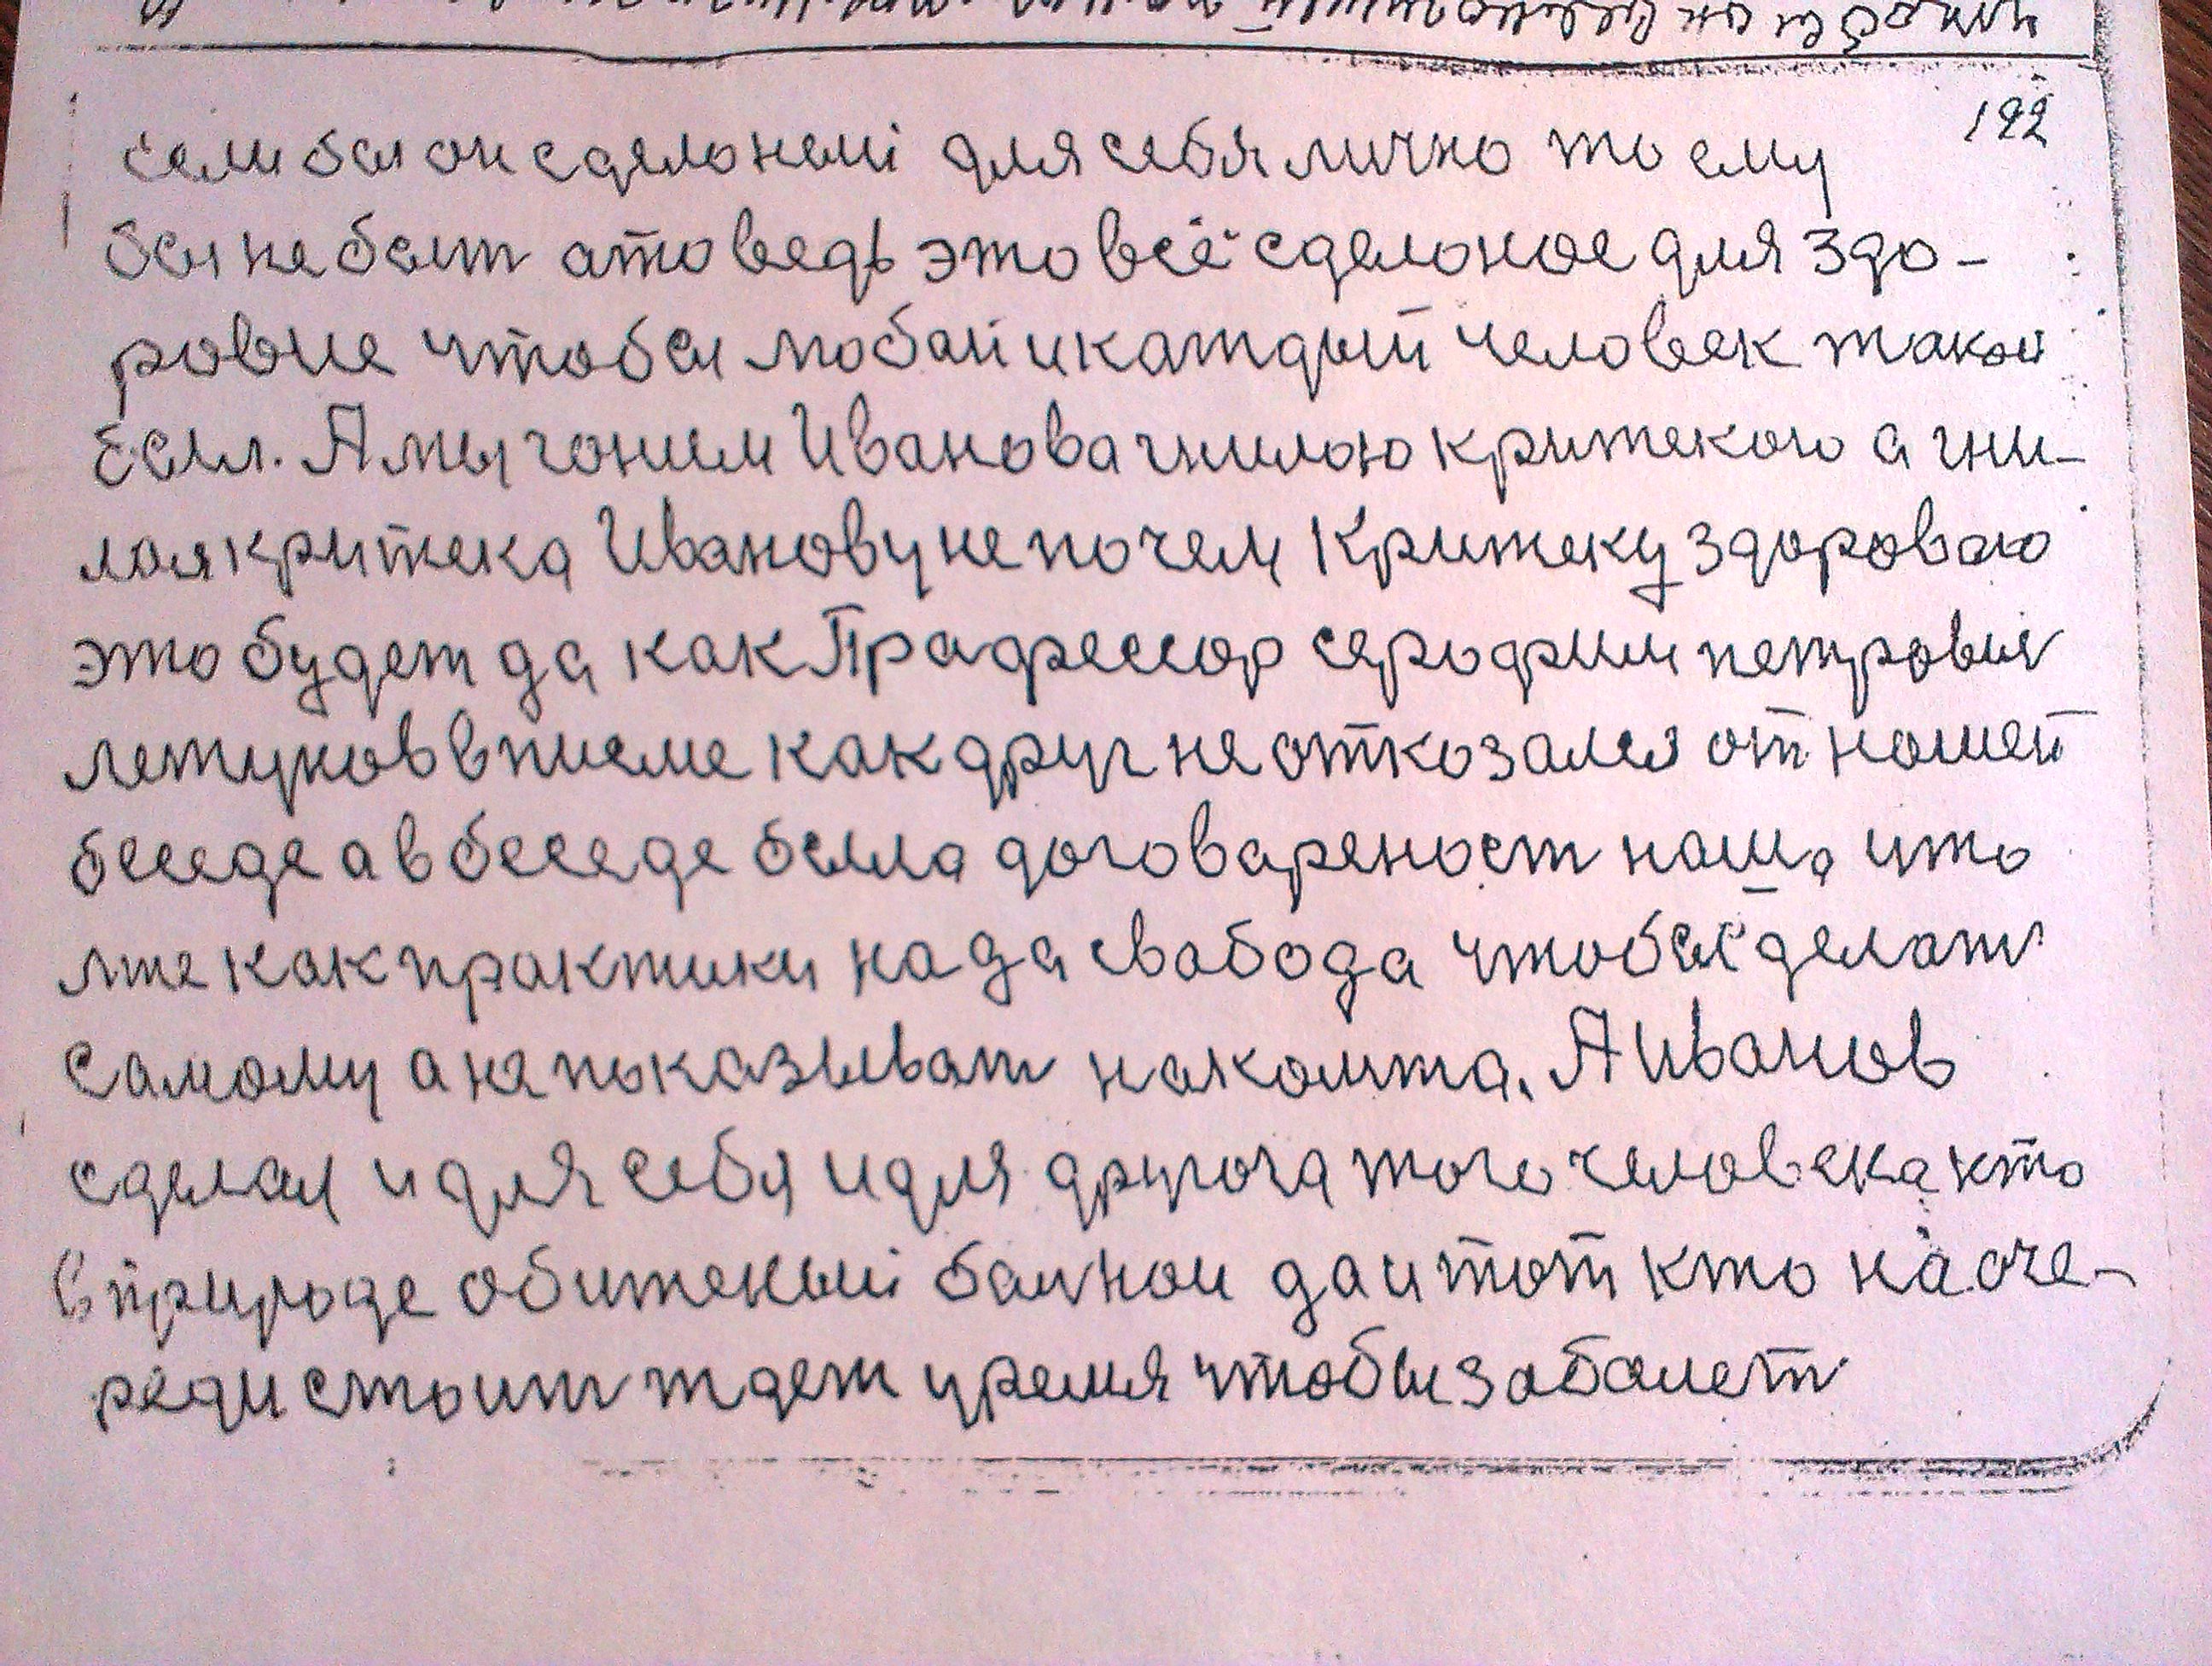 192
если бы он сделоный для себя лично то ему
бы не быт ато ведь это всё сделоное для здо-
ровие чтобы любай и каждый человек такой
был. А мы гоним Иванова гнилою критекою а гни-
лоя критека Иванову не по чем Критеку здороваю
это будет да как Прафессор серофим петровия
летунов в писме как друг не откозался от ношей
беседе а в беседе была договареност ноша што
мне как практики нада свобода чтобы сделат
самому а не показыват накомта. А Иванов
сделал и для себя и для другога того человека кто
в природе обитеный балной да и тот кто на оче-
реди стоит ждет уремя чтобы заболет